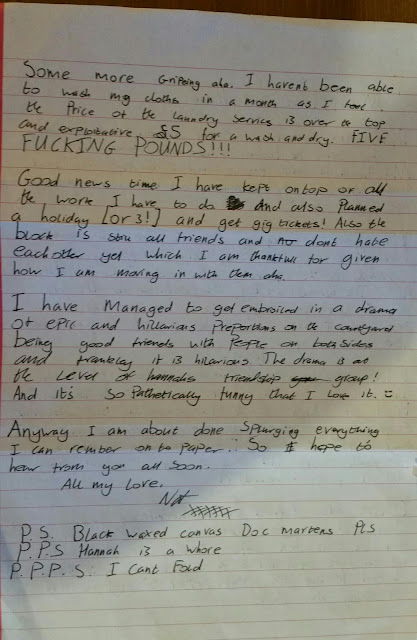 Some more Gripeing aka. I havent been able
to wash my cloths in a month as I feel
the Price of the laundry service is over the top
and exploitative. £5 for a wash and dry. FIVE
FUCKING POUNDS!!!
Good news time I have kept ontop of all
the work I have to do And also Planned
a holiday [or 3!] and get gig tickets! Also the
block is still all friends and dont hate
eachother yet which I am thankful for given
how I am moving in with them aha.
I have Managed to get embroiled in a drama
of epic and hillarious Preportions on the courtyard
being good friends with People on both sides
and frankley it is hilarious. The drama is at
the level of hannahs friendship group!
And it's so Pathetically funny that I love it. :)
Anyway I am about done Splurging everything
I can rember onto paper. So I hope to
hear from you all soon.
All my love,
Nat
xxxxxx
P.S. Black waxed canvas Doc martens Pls
P.P.S Hannah is a whore
P.P.P.S. I Cant Fold